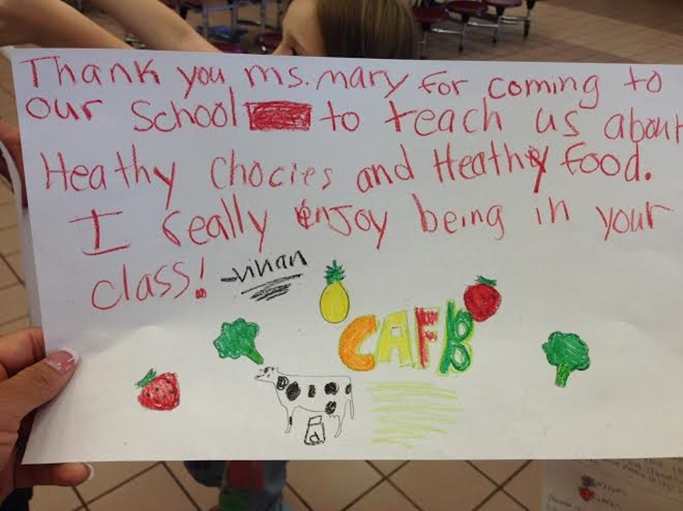 Thank you ms. mary for coming to
our school to teach us about
Heathy chocies and Heathy food.
I really enjoy being in your
class! -vihan
CAFB